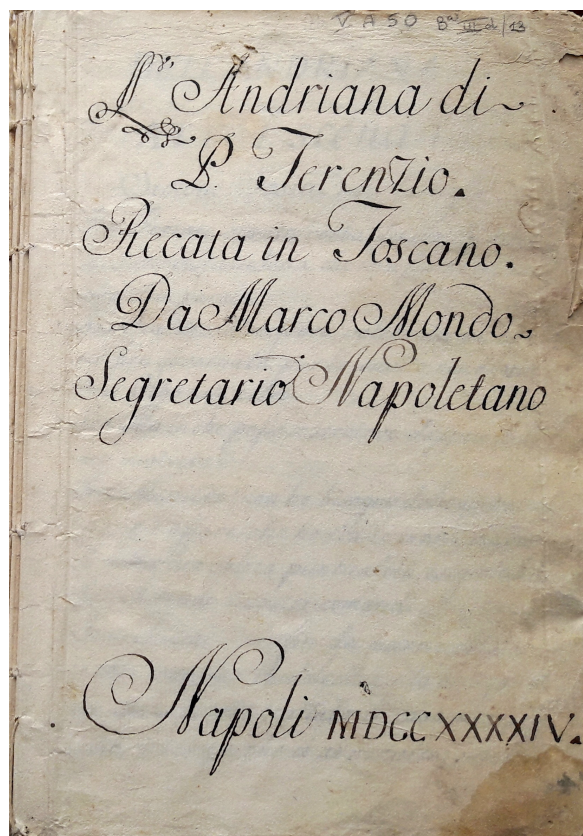 V. A 50 8
L'Andriana di~
P. Terenzio.
Recata in Toscano.
Da Marco Mondo~
Segretario Napoletano
Napoli MDCCXXXXIV.